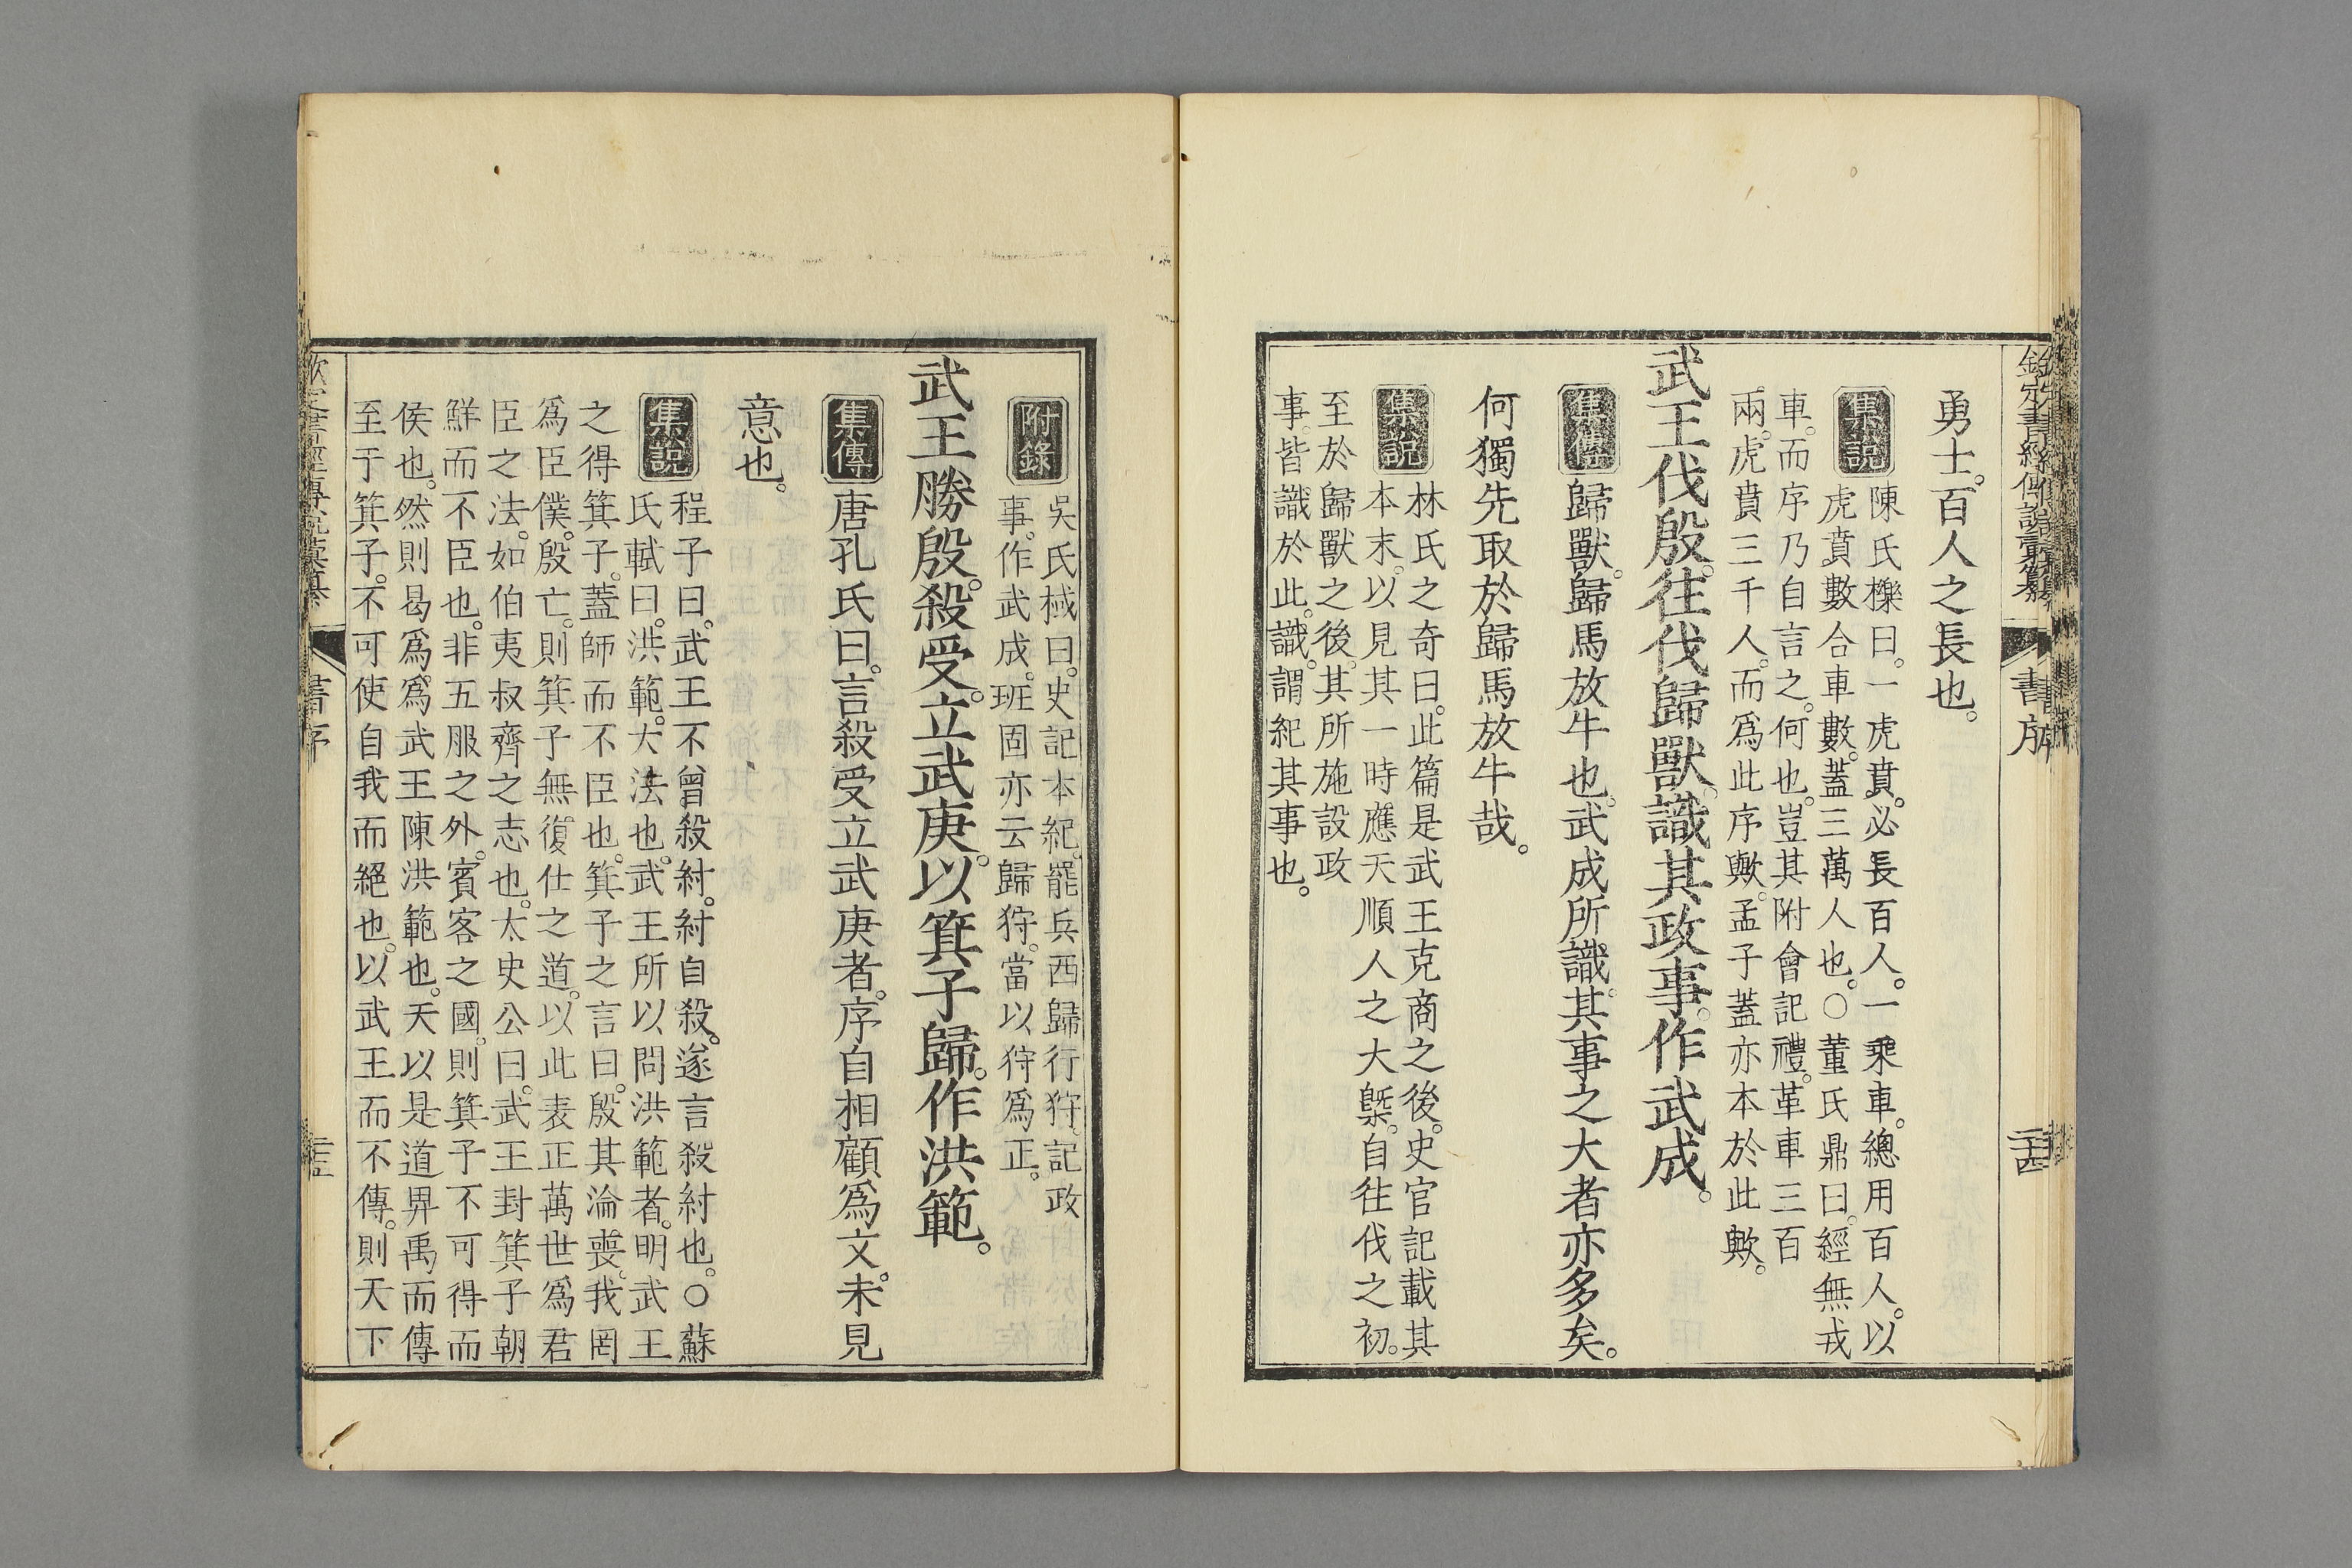 欽定書經傳說彙纂
書序
二十四
勇士。百人之長也。
集說
陳氏櫟曰。一虎賁。必長百人。一乘車。總用百人。以
虎賁數合車數。蓋三萬人也。○董氏鼎曰。經無戎
車。而序乃自言之。何也。豈其附會記禮。革車三百
兩。虎賁三千人。而爲此序歟。孟子蓋亦本於此歟。
武王伐殷。往伐歸獸。識其政事。作武成。
集傳
歸獸。歸馬放牛也。武成所識。其事之大者亦多矣。
何獨先取於歸馬放牛哉。
集說
林氏之奇曰。此篇是武王克商之後。史官記載其
本末。以見其一時應天順人之大槩。自往伐之初。
至於歸獸之後。其所施設政
事。皆識於此。識。謂紀其事也。
附錄
吳氏棫曰。史記本紀。罷兵西歸行狩。記政
事。作武成。班固亦云歸狩。當以狩爲正。
武王勝殷。殺受。立武庚。以箕子歸。作洪範。
集傳
唐孔氏曰。言殺受立武庚者。序自相顧爲文。未見
意也。
集說
程子曰。武王不曾殺紂。紂自殺。遂言殺紂也。○蘇
氏軾曰。洪範。大法也。武王所以問洪範者。明武王
之得箕子。蓋師而不臣也。箕子之言曰。殷其淪喪。我罔
爲臣僕。殷亡。則箕子無復仕之道。以此表正萬世爲君
臣之法。如伯夷叔齊之志也。太史公曰。武王封箕子朝
鮮而不臣也。非五服之外。賓客之國。則箕子不可得而
侯也。然則曷爲。爲武王陳洪範也。天以是道畀禹而傳
至于箕子。不可使自我而絕也。以武王而不傳。則天下
欽定書經傳說彙纂
書序
二十五